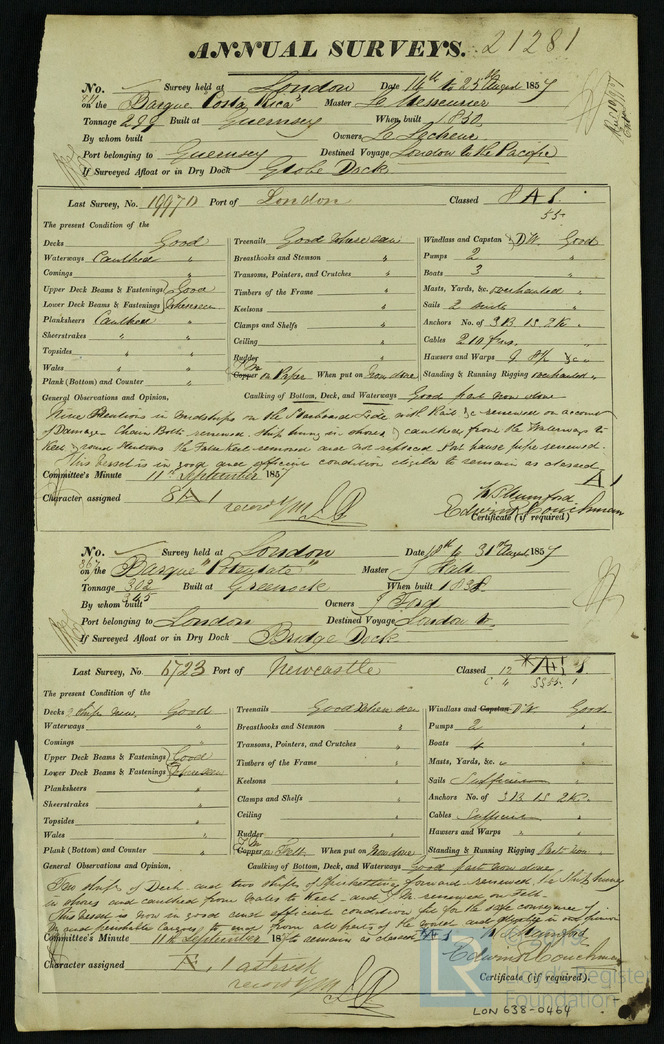 ANNUAL SURVEYS. 21281
No. Survey held at London Date 14th to 25th August 1857
on the Barque "Costa Rica" Master Le Messurier
Tonnage 299 Built at Guernsey When built 1850
By whom built Owners Le Lecheur
Port belonging to Guernsey Destined Voyage London to the Pacific
If Surveyed Afloat or in Dry Dock Globe Dock
Last Survey, No. Port of London Classed 8 A 1.
55.
The present Condition of the
Decks Good Treenails Good where seen Windlass and Capstan D.W. Good
Waterways Caulked " Breasthooks and Stemson " Pumps 2 "
Comings " Transoms, Pointers, and Crutches " Boats 3 "
Upper Deck Beams & Fastenings Good Timbers of the Frame " Masts, Yards, &c. overhauled "
Lower Deck Beams & Fastenings where seen Keelsons " Sails 2 suits "
Planksheers Caulked " Clamps and Shelfs " Anchors No. of 3 B 1 S 2 K. "
Sheerstrakes " " Ceiling " Cables 210 fms. "
Topsides " Rudder " Hawsers and Warps 9 &c "
Wales " Copper YM on Paper When put on Now done Standing & Running Rigging overhauled "
Plank (Bottom) and Counter " Caulking of Bottom, Deck, and Waterways Good part now done
General Observations and Opinion,
Nine Stantions in midships on the Starboard side with Rail &c renewed on account
of Damage Chain Bolts renewed. Ship hung in shores & caulked from the Waterways to
Keel & round Stantions the False Keel removed and not replaced Port hause pipe renewed.
This Vessel is in good and efficient condition eligible to remain as classed A 1
Committee's Minute 11th September 1857
Character assigned 8 A 1
Edwin Couchman
Certificate (if required)
No. Survey held at London Date 18th to 31st August 1857
on the Barque "Potentate" Master J Hall
Tonnage 302 Built at Greenock When built 1838
345
By whom built Owners J Ford
Port belonging to London Destined Voyage London to
If Surveyed Afloat or in Dry Dock Bridge Dock
Last Survey, No. 5723 Port of Newcastle Classed 12 *A 1
The present Condition of the
Decks Good Treenails Good where seen Windlass and Capstan D.W. Good
Waterways " Breasthooks and Stemson " Pumps 2 "
Comings " Transoms, Pointers, and Crutches " Boats 4 "
Upper Deck Beams & Fastenings Good Timbers of the Frame " Masts, Yards, &c. "
Lower Deck Beams & Fastenings where seen Keelsons " Sails Sufficient "
Planksheers " Clamps and Shelfs " Anchors No. of 3 B 1 S 2 K. "
Sheerstrakes " Ceiling " Cables Sufficient "
Topsides " Rudder " Hawsers and Warps " "
Wales " Copper YM on Felt When put on Now done Standing & Running Rigging Part new "
Plank (Bottom) and Counter " Caulking of Bottom, Deck, and Waterways Good part now done
General Observations and Opinion,
Few strips of Deck and two strips of Spirketting forward renewed. The Ship hung
in shores and caulked from Wales to Keel and YM renewed on Felt.
This Vessel is now in good and efficient condition fit for the safe conveyance of
dry and perishable cargoes to and from all parts of the world and eligible in our opinion
Committee's Minute 11th September 1857 to remain as classed A 1
Character assigned A 1 asterisk
Edwin Couchman
Certificate (if required).
LR
Lloyd's Register
Foundation
LON 638-0464